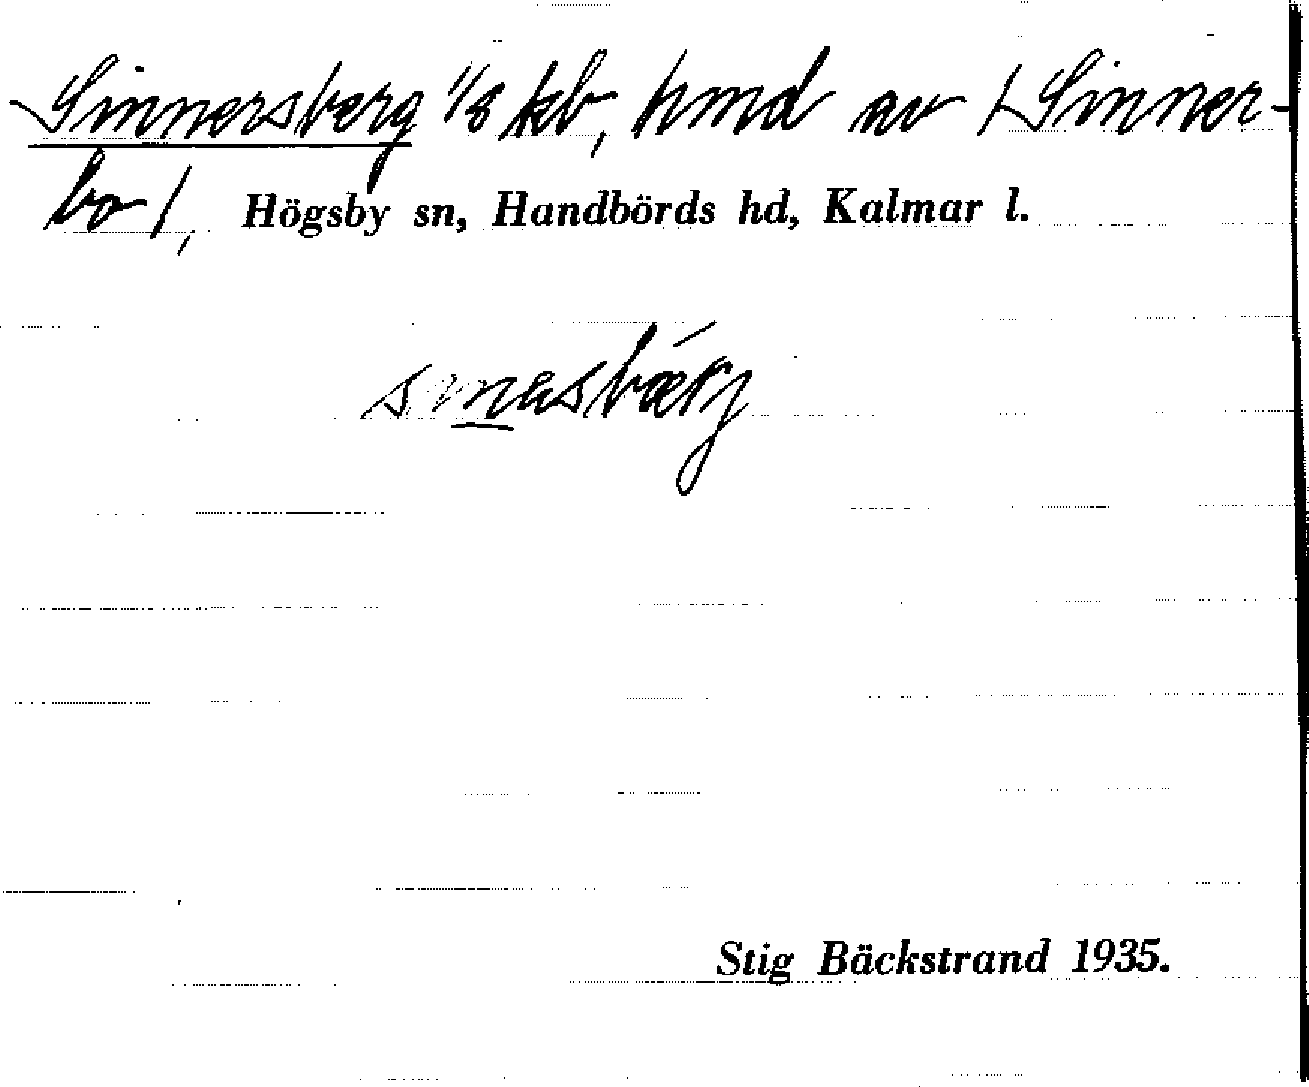 Sinnersberg 1/8 kb, hmd av /Sinner-
bo/, Högsby sn, Handbörds hd, Kalmar l.
Stig Bäckstrand 1935.